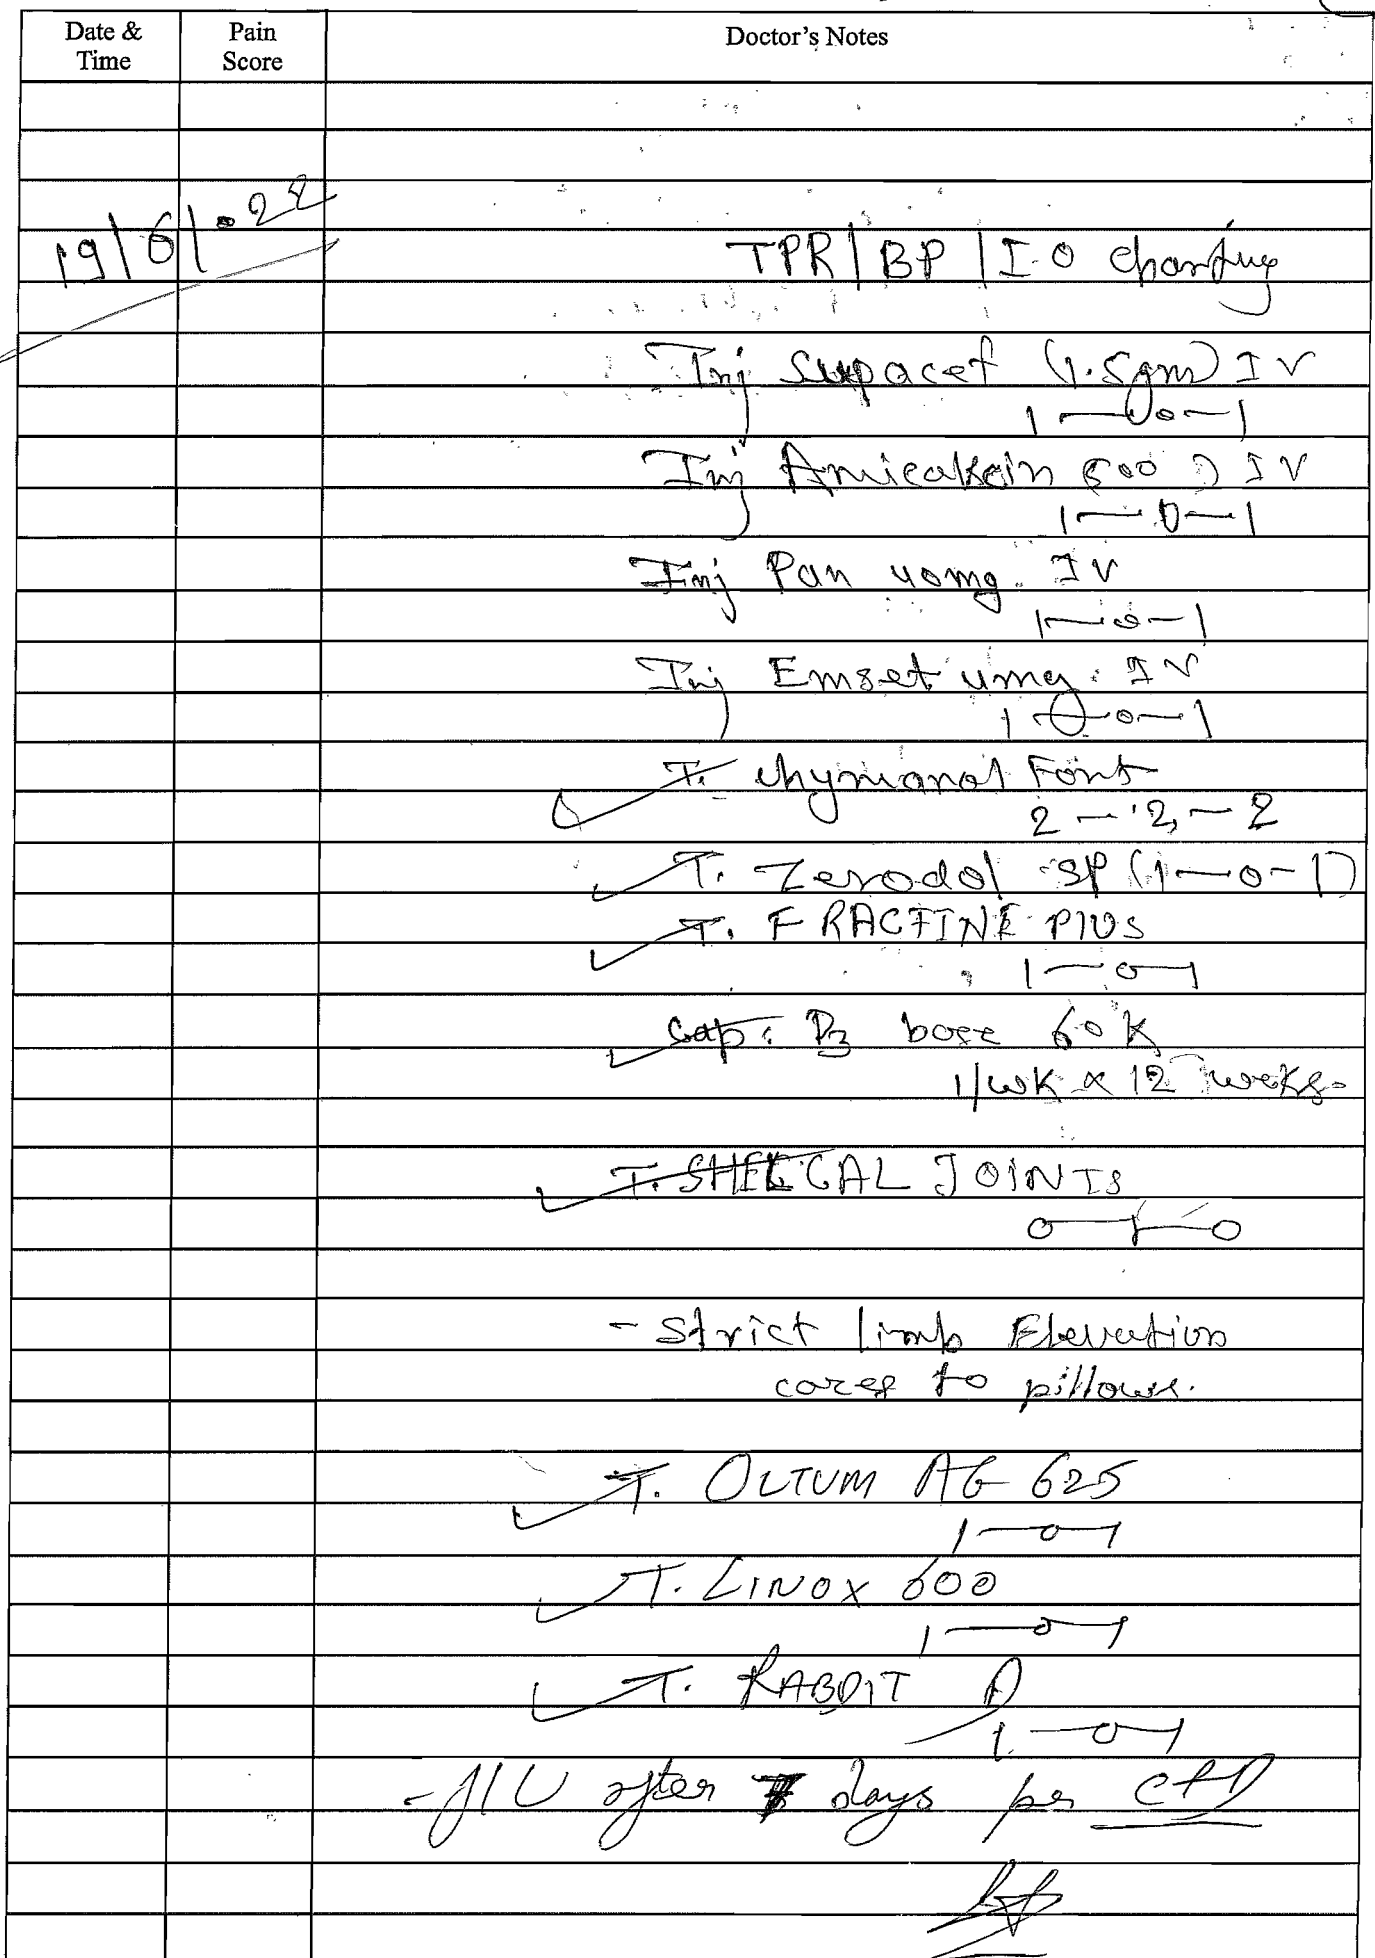 Date & Time
Pain Score
Doctor's Notes
19/6/.22
TPR | BP | I-O charting
Inj Supacef (1.5gm) IV
1—0—1
Inj Amicakcin 500 IV
1—0—1
Inj Pan 40mg. IV
1—0—1
Inj Emset 4mg. IV
1—0—1
T. chymoral Fort
2—2—2
T. Zerodol SP (1—0—1)
T. FRACTINE PlUS
1—0—1
Cap: D3 60K
1/wk x 12 weeks.
T. SHELCAL JOINTS
0—1—0
- Strict limb Elevation
to pillows.
T. OLTUM AG 625
1—0—1
T. LINOX 600
1—0—1
T. D
1—0—1
- after 7 days